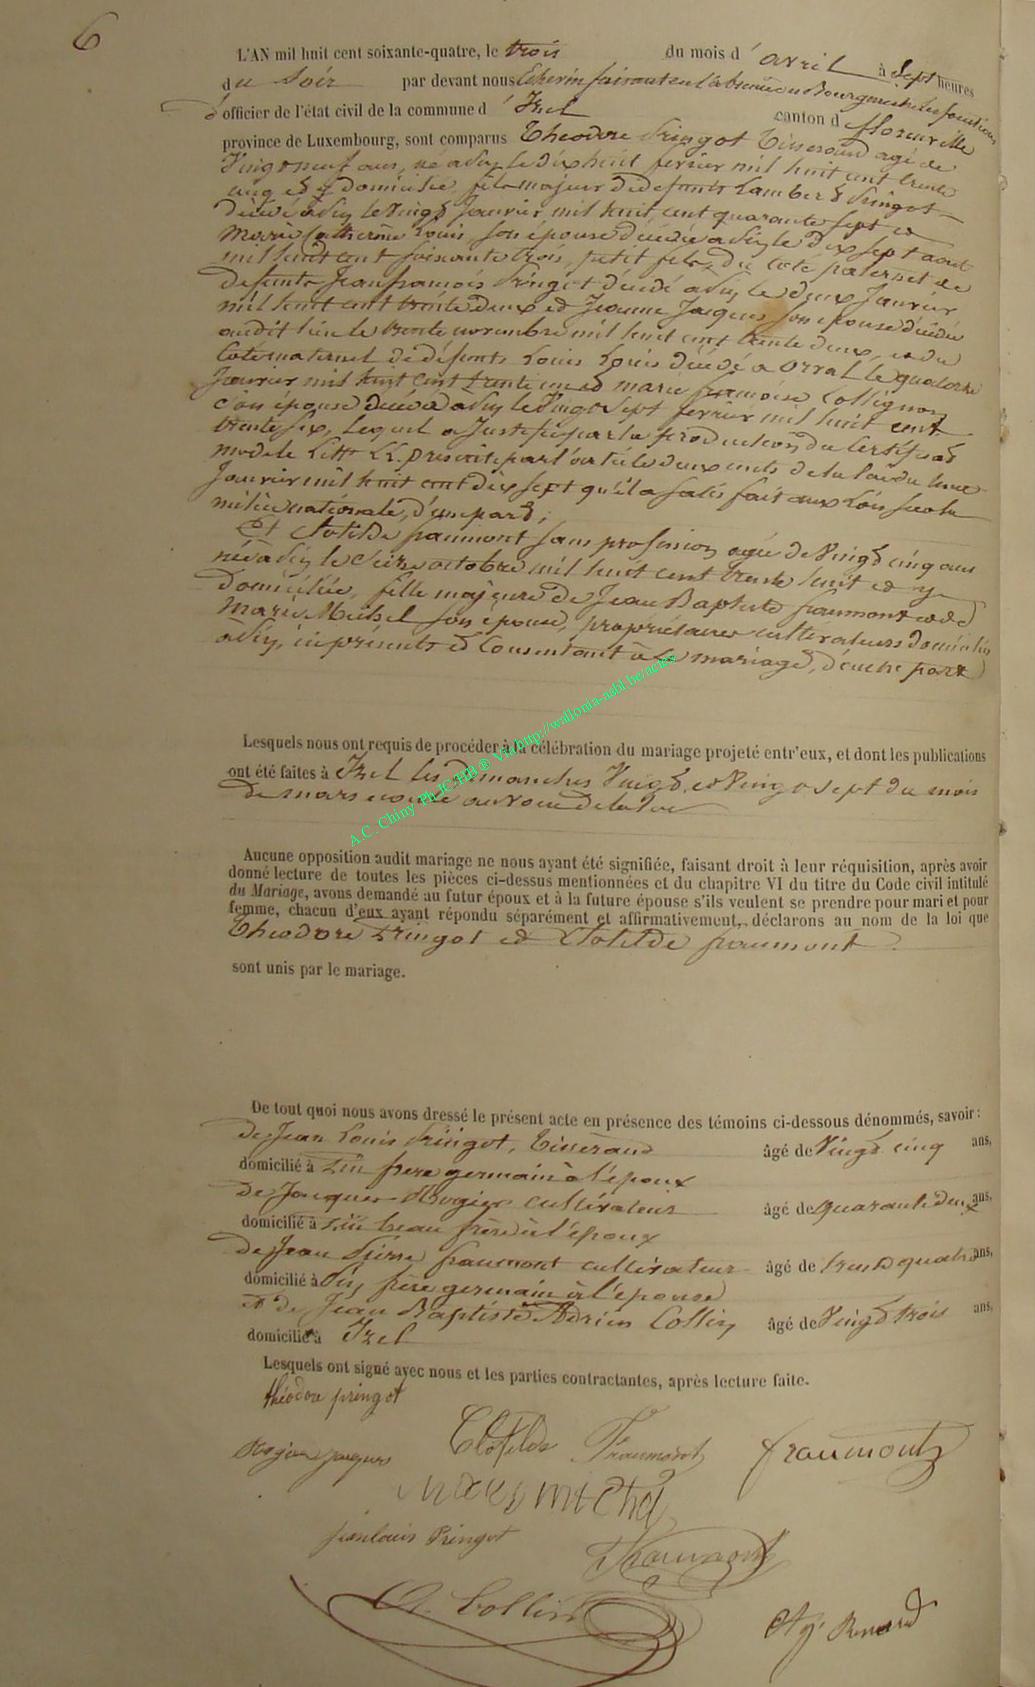 6
L'AN mil huit cent soixante-quatre, le trois du mois d'avril à Sept heures
du Soir par devant nous Echevin faisant en l'absence du Bourgmestre les fonctions
d'officier de l'état civil de la commune d'Izel canton de florenville
province de Luxembourg, sont comparus Theodore Pringot Tisserand agé de
Vingt neuf ans, né à le dix huit fevrier mil huit cent trente
cinq et y domicilié, fils majeur de defunts Lambert Pringot
décédé à le Vingt Janvier mil huit cent quarante sept et
Marie Catherine Louis son épouse décédée à le dix sept aout
mil huit cent soixante trois, petit fils, du coté paternel de
defunts Jean françois Pringot décédé à le deux Janvier
mil huit cent trente deux et Jeanne Jacques son epouse décédée
audit lieu le trente novembre mil huit cent trente deux, et du
Coté maternel de défunts Louis Louis décédé à Orval le quatorze
Janvier mil huit cent trente un et marie françoise Collignon
son épouse décédée à le Vingt Sept fevrier mil huit cent
trente six, Lequel a Justifié par la production du Certificat
modele Littr LL. prescrit par l'article deux cents de la Loi du huit
Janvier mil huit cent dix sept qu'il a satisfait aux Lois sur la
milice nationale, d'une part;
Et Clotilde fraumont sans profession agée de Vingt cinq ans
née à le octobre mil huit cent trente huit et y
domiciliée, fille majeure de Jean Baptiste fraumont et de
Marie Michel son épouse, propriétaires cultivateurs domiciliés
à ici présents et Consentant à ce mariage, d'autre part
A.C. Chiny Ph.JC.HB ® Via http://wallonia-asbl.be/actes
Lesquels nous ont requis de procéder à la célébration du mariage projeté entr'eux, et dont les publications
ont été faites à Izel les dimanches Vingt et Vingt sept du mois
de mars au vœu de la Loi
Aucune opposition audit mariage ne nous ayant été signifiée, faisant droit à leur réquisition, après avoir
donné lecture de toutes les pièces ci-dessus mentionnées et du chapitre VI du titre du Code civil intitulé
du Mariage, avons demandé au futur époux et à la future épouse s'ils veulent se prendre pour mari et pour
femme, chacun d'eux ayant répondu séparément et affirmativement, déclarons au nom de la loi que
Theodore Pringot et Clotilde fraumont
sont unis par le mariage.
De tout quoi nous avons dressé le présent acte en présence des témoins ci-dessous dénommés, savoir :
de Jean Louis Pringot, Tisserand âgé de Vingt cinq ans,
domicilié à frere germain à l'époux
de Jacques cultivateur âgé de quarante deux ans,
domicilié à beau frère à l'époux
de Jean Pierre fraumont cultivateur âgé de trente quatre ans,
domicilié à frère germain à l'épouse
et de Jean Baptiste Adrien Collin âgé de Vingt trois ans,
domicilié à Izel
Lesquels ont signé avec nous et les parties contractantes, après lecture faite.
théodore pringot
Clotilde Fraumont fraumont
jacques
marie michel
jean louis Pringot Fraumont
A. Collin
Renard